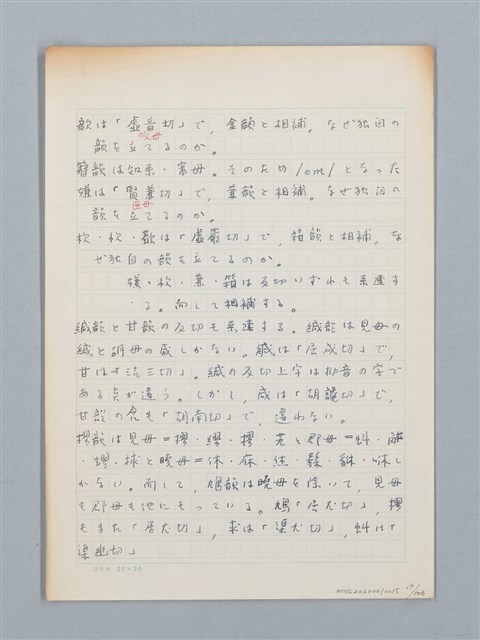 歆は「虚音切」で，金韻と相補。なぜ独自の
暁母
韻を立てるのか。
簪韻は知系・審母。そのため/em/となった
嫌は「賢兼切」で，兼韻と相補。なぜ独自の
匣母
韻を立てるのか。
杴・忺・歁は「虚嚴切」で，箝韻と相補，な
ぜ独自の韻を立てるのか。
嫌・杴・兼・箝は反切いずれも系連す
る。而して相補する。
緘韻と甘韻の反切も系連する。緘韻は見母の
緘と胡母の咸しかない。緘は「居咸切」で，
甘は「沽三切」。緘の反切上字は拗音の字で
ある点が違う。しかし，咸は「胡讒切」で，
甘韻の含も「胡南切」で，違わない。
樛韻は見母＝樛・繆・摎・艽と郡母＝虯・
・璆・球と暁母＝休・庥・烋・髹・貅・咻し
かない。而して，鳩韻は暁母を除いて，見母
も郡母も他にもっている。鳩「居尤切」，樛
もまた「居尤切」，求は「渠尤切」，虯は「
渠幽切」
コクヨ 20×20
NMTL20200010015
17/106